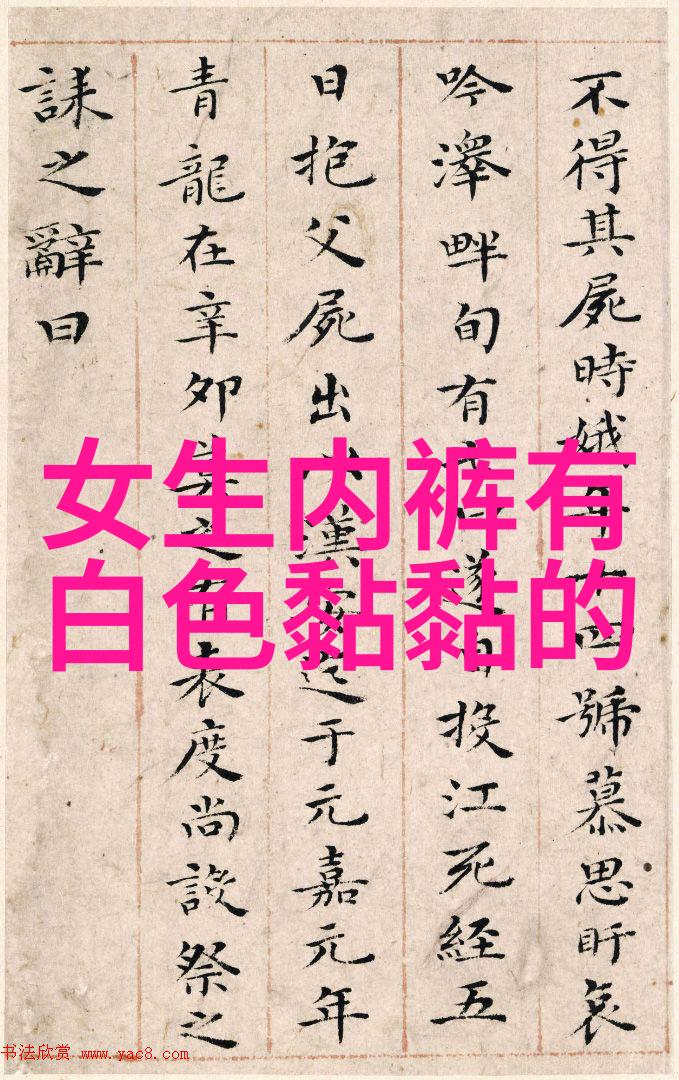 不得其屍時娥年十四號慕思盱哀
吟澤畔旬有遂自投江死經五
日抱父屍出以漢安迄于元嘉元年
青龍在辛卯莫之有表度尚設祭之
誄之辭曰
女生内裤有
白色黏黏的
书法欣赏 www.yac8.com